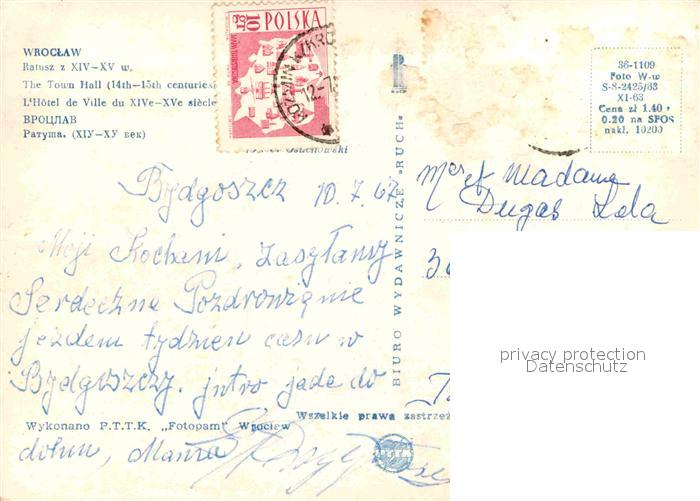 WROCŁAW
Ratusz z XIV-XV w.
The Town Hall (14th-15th centuries)
L'Hôtel de Ville du XIVe-XVe siècle
ВРОЦЛАВ
Ратуша. (XIV-XV век)
10 GR POLSKA
12.-7.
36-1109
Foto W-w
S-8-2425/63
XI-63
Cena zł 1.40 +
0.20 na SFOS
nakł. 10200
Bydgoszcz 10.7.67
Moji Kochani, zasyłamy
Serdeczne Pozdrowięnie
jezdem tydzien casu w
Bydgoszczy. jutro jade do
domu, Mama
BIURO WYDAWNICZE „RUCH”
Mer et Madame
Dugas Lola
privacy protection
Datenschutz
Wszelkie prawa zastrzeż
Wykonano P.T.T.K. „Fotopam” Wrocław